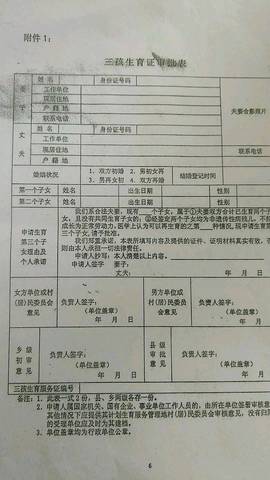 附件1：
三孩生育证审批表
妻子 姓名 身份证号码 夫妻合影照片
工作单位
现居住地
户籍地
联系电话
丈夫 姓名 身份证号码
工作单位
现居住地 联系电话
户籍地
婚姻状况 1. 双方初婚 2. 男初女再 结婚登记时间
3. 男再女初 4. 双方再婚
第一个子女 姓名 出生日期 性别
第二个子女 姓名 出生日期 性别
申请生育第三个子女理由及个人承诺
我们系合法夫妻，现有 个子女，属于①夫妻双方合计已生育两个子
女，且没有共同生育子女的，②经鉴定两个子女均为非遗传性病残儿，不
成长为正常劳动力，医学上认为可以再生育的之第 种情况，现申请生育第
三个子女，请予批准。
我们郑重承诺，本表所填写内容及提供的证件、证明材料真实有效，否
则由本人承担一切法律责任。
申请人抄写：本人清楚以上内容。
申请人签字 妻子：
丈夫： 年 月 日
女方单位或村（居）民委员会意见 负责人签字： 男方单位或村（居）民委员会意见 负责人签字：
（单位盖章） （单位盖章）
年 月 日 年 月
乡级初审意见 负责人签字： 县级审批意见 负责人签字：
（单位盖章） （单位盖章）
年 月 日 年 月
三孩生育服务证编号
备注：1. 此表一式2份，县、乡两级各存一份。
2. 申请人属国家机关、国有企业、事业单位工作人员的，由所在单位签署审核意
其他情况下应提供其计划生育服务管理地村（居）民委员会审核意见，没有归
的受理单位应及时为其建档。
3. 单位盖章均为行政单位公章。
6